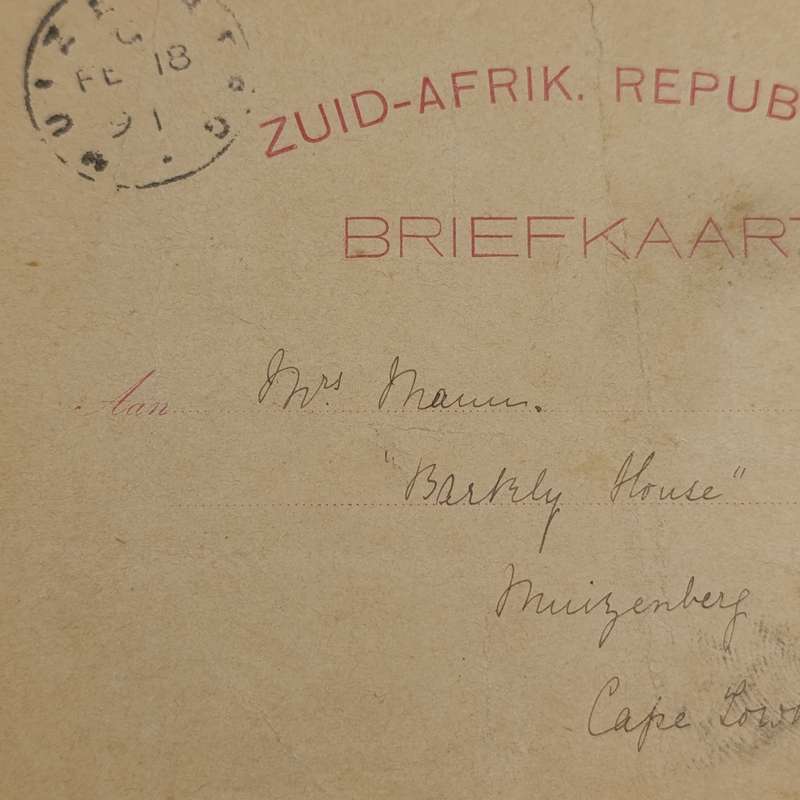 FE 18
91
ZUID-AFRIK. REPUB
BRIEFKAART
Aan Mrs Mann.
"Barkly House"
Muizenberg
Cape Town